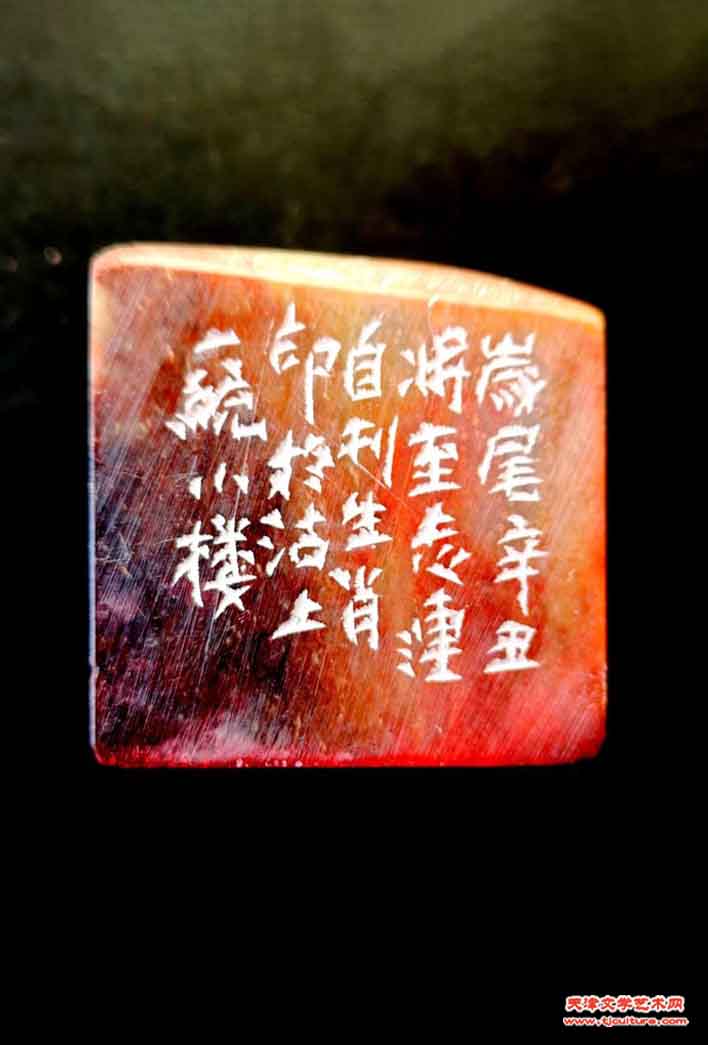 歲尾辛丑
将至志湩
自刊生肖
印於沽上
小樓
天津文学艺术网
www.tjculture.com